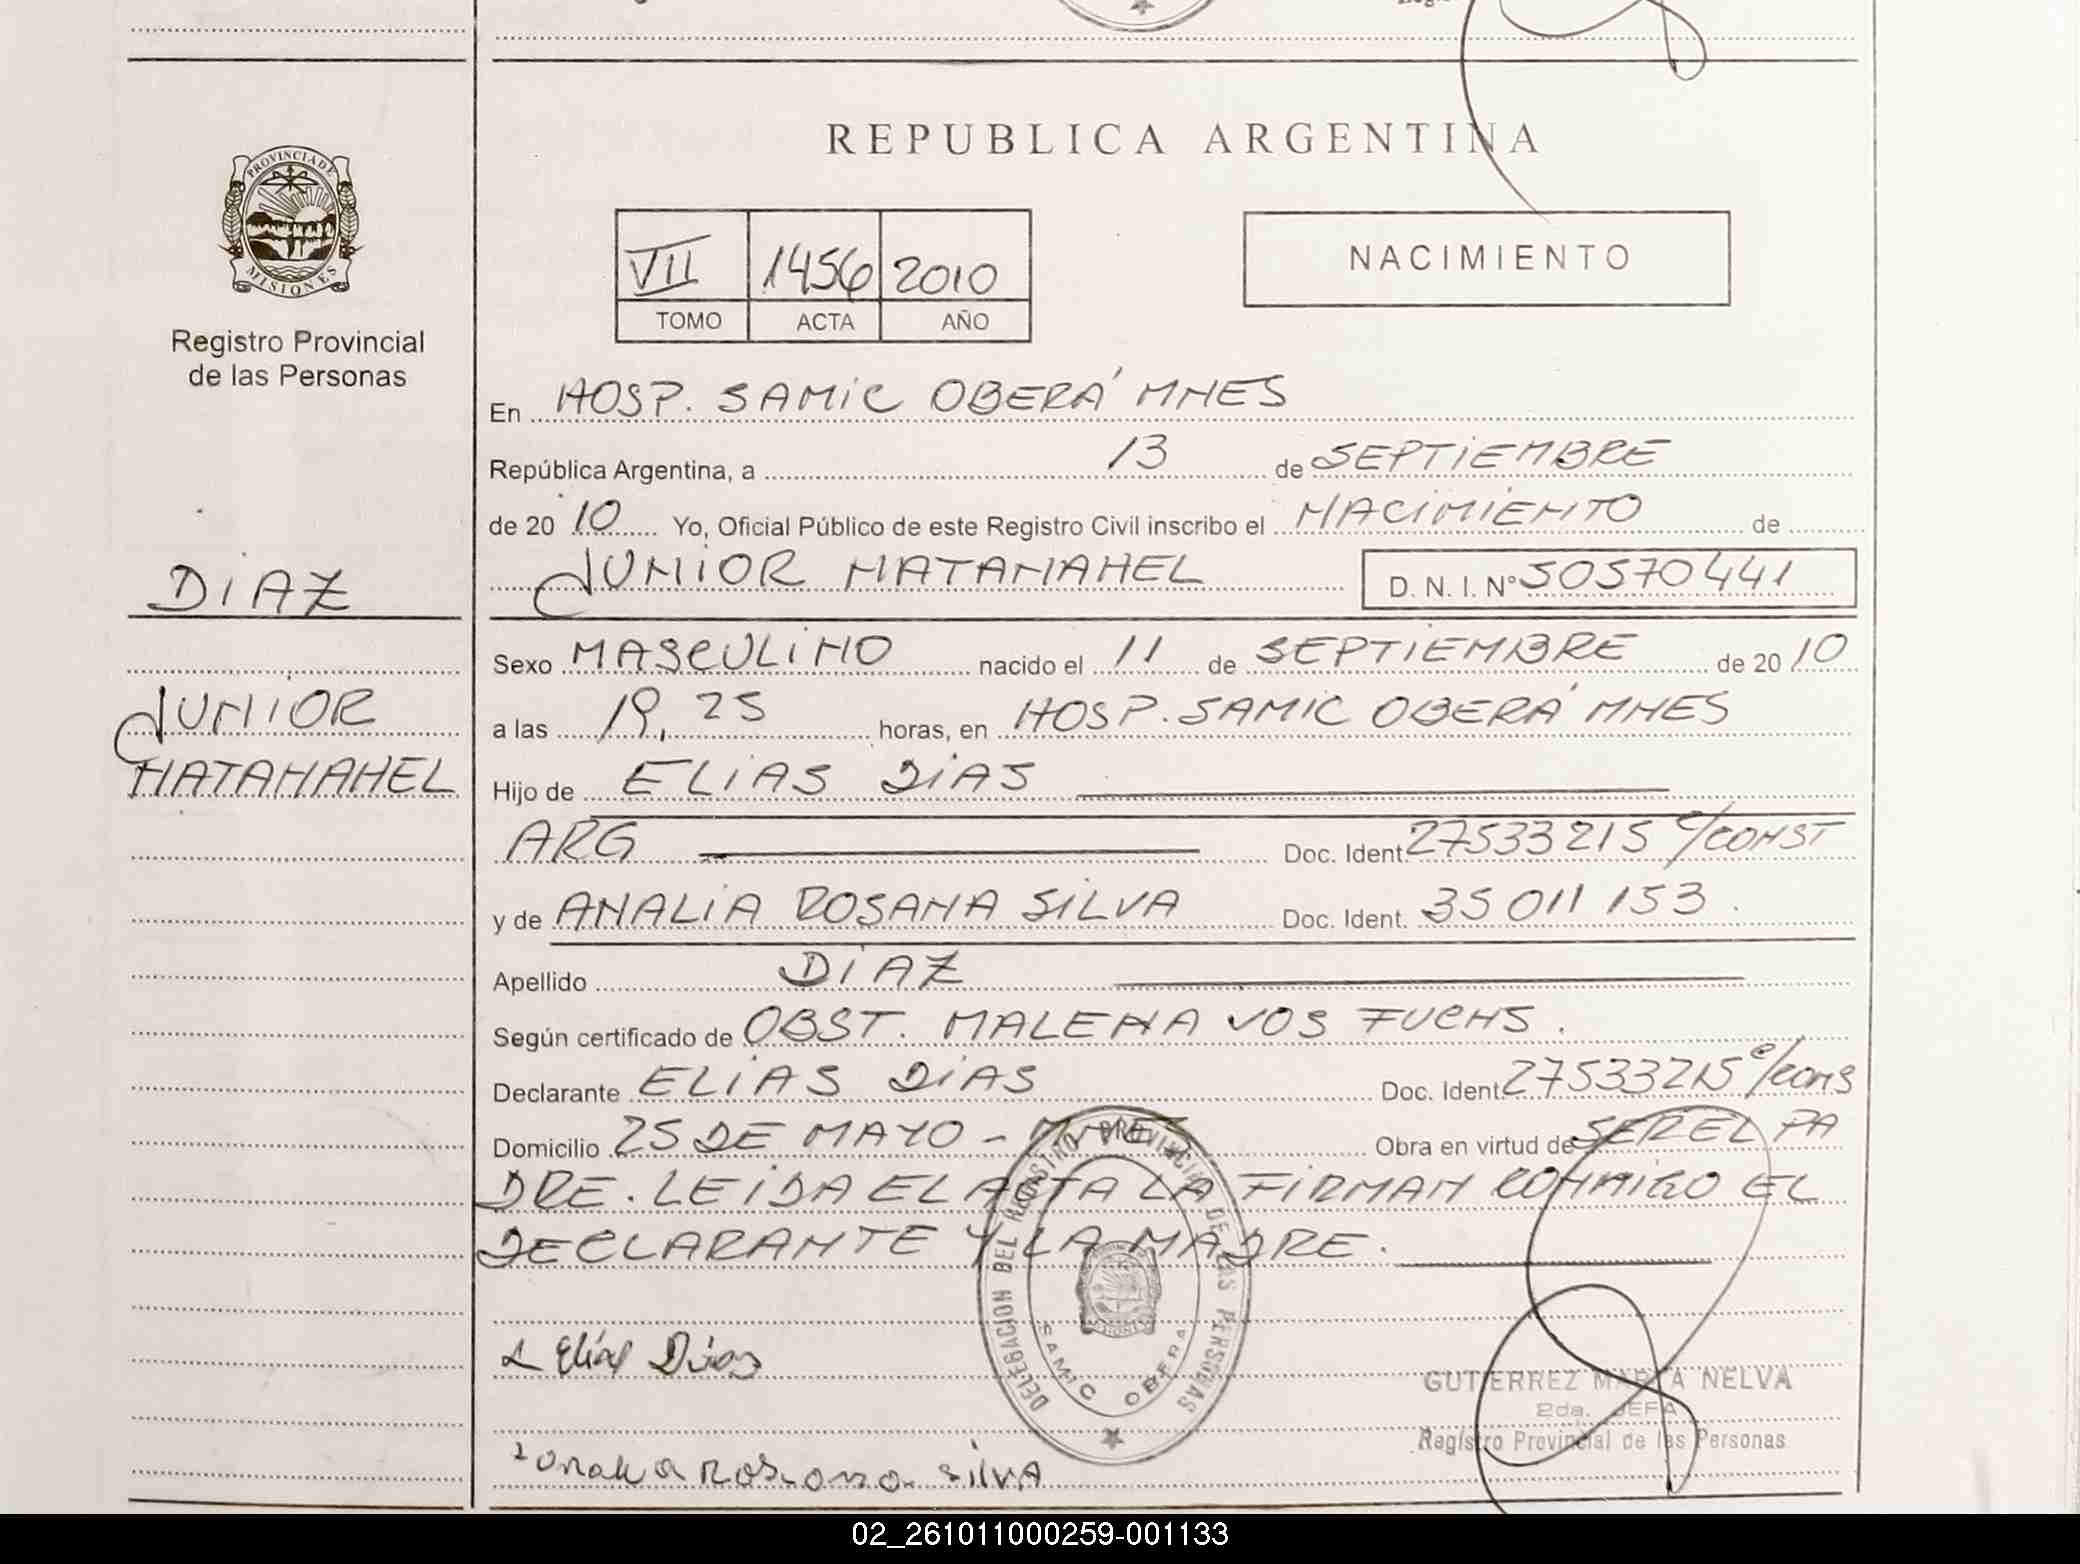 REPUBLICA ARGENTINA
PROVINCIA DE
MISIONES
Registro Provincial
de las Personas
VII 1456 2010
TOMO ACTA AÑO
NACIMIENTO
En HOSP. SAMIC OBERÁ MNES
República Argentina, a 13 de SEPTIEMBRE
de 20 10 Yo, Oficial Público de este Registro Civil inscribo el NACIMIENTO de
DIAZ
JUNIOR NATANAHEL D. N. I. N° 50570441
Sexo MASCULINO nacido el 11 de SEPTIEMBRE de 20 10
JUNIOR
NATANAHEL
a las 19,25 horas, en HOSP. SAMIC OBERÁ MNES
Hijo de ELIAS DIAS
ARG Doc. Ident. 27533215 c/CONST
y de ANALIA ROSANA SILVA Doc. Ident. 35011153.
Apellido DIAZ
Según certificado de OBST. MALENA VOS FUCHS.
Declarante ELIAS DIAS Doc. Ident. 27533215 c/cons
Domicilio 25 DE MAYO - MNES Obra en virtud de SER EL PA
DRE. LEIDA EL ACTA LA FIRMAN CONMIGO EL
DECLARANTE Y LA MADRE.
DELEGACION DEL REGISTRO PROVINCIAL DE LAS PERSONAS
SAMIC OBERA
Elías Dias
GUTIERREZ MARTA NELVA
2da. JEFA
Registro Provincial de las Personas
Rosana SilVA
02_261011000259-001133